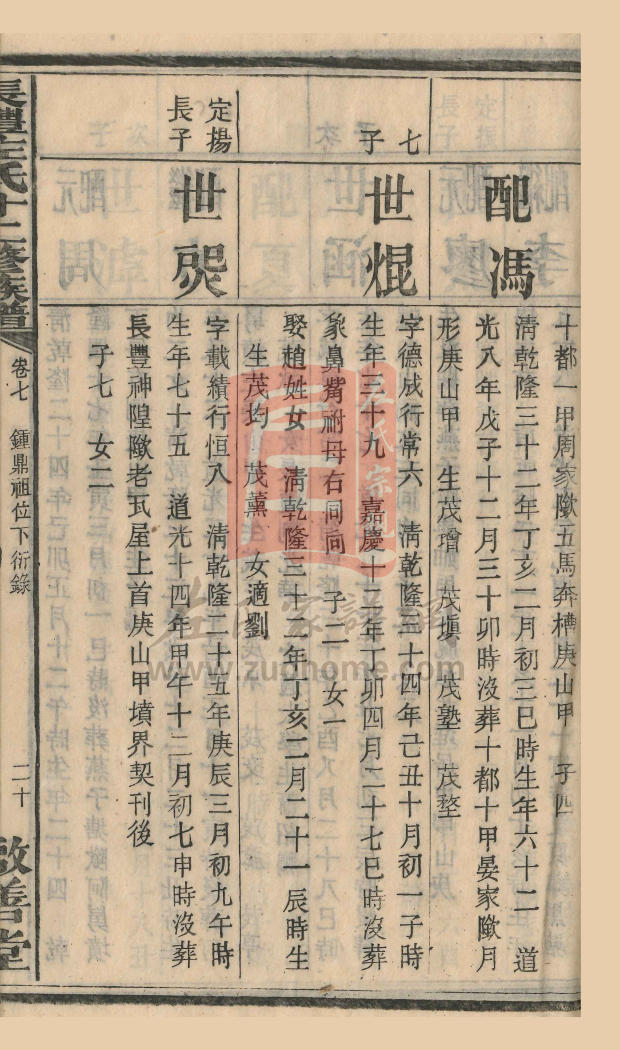 十都一甲周家歐五馬奔槽庚山甲 子四
配馮
清乾隆三十二年丁亥二月初三巳時生年六十二 道
光八年戊子十二月三十卯時沒葬十都十甲晏家歐月
形庚山甲 生茂璔 茂塡 茂塾 茂堥
七
子
世焜
字德成行常六 清乾隆三十四年己丑十月初一子時
生年三十九 嘉慶十二年丁卯四月二十七巳時沒葬
象鼻嘴祔母右同向 子二 女一
娶趙姓女 清乾隆三十二年丁亥二月二十一辰時生
生茂均 茂薰 女適劉
定揚
長子
世煚
字載績行恒八 清乾隆二十五年庚辰三月初九午時
生年七十五 道光十四年甲午十二月初七申時沒葬
長豐神隍歐老瓦屋上首庚山甲墳界契刊後
子七 女二
長豐左氏十二修族譜
卷七 鍾鼎祖位下衍錄
二十
敬善堂
左氏家譜網
www.zuohome.com